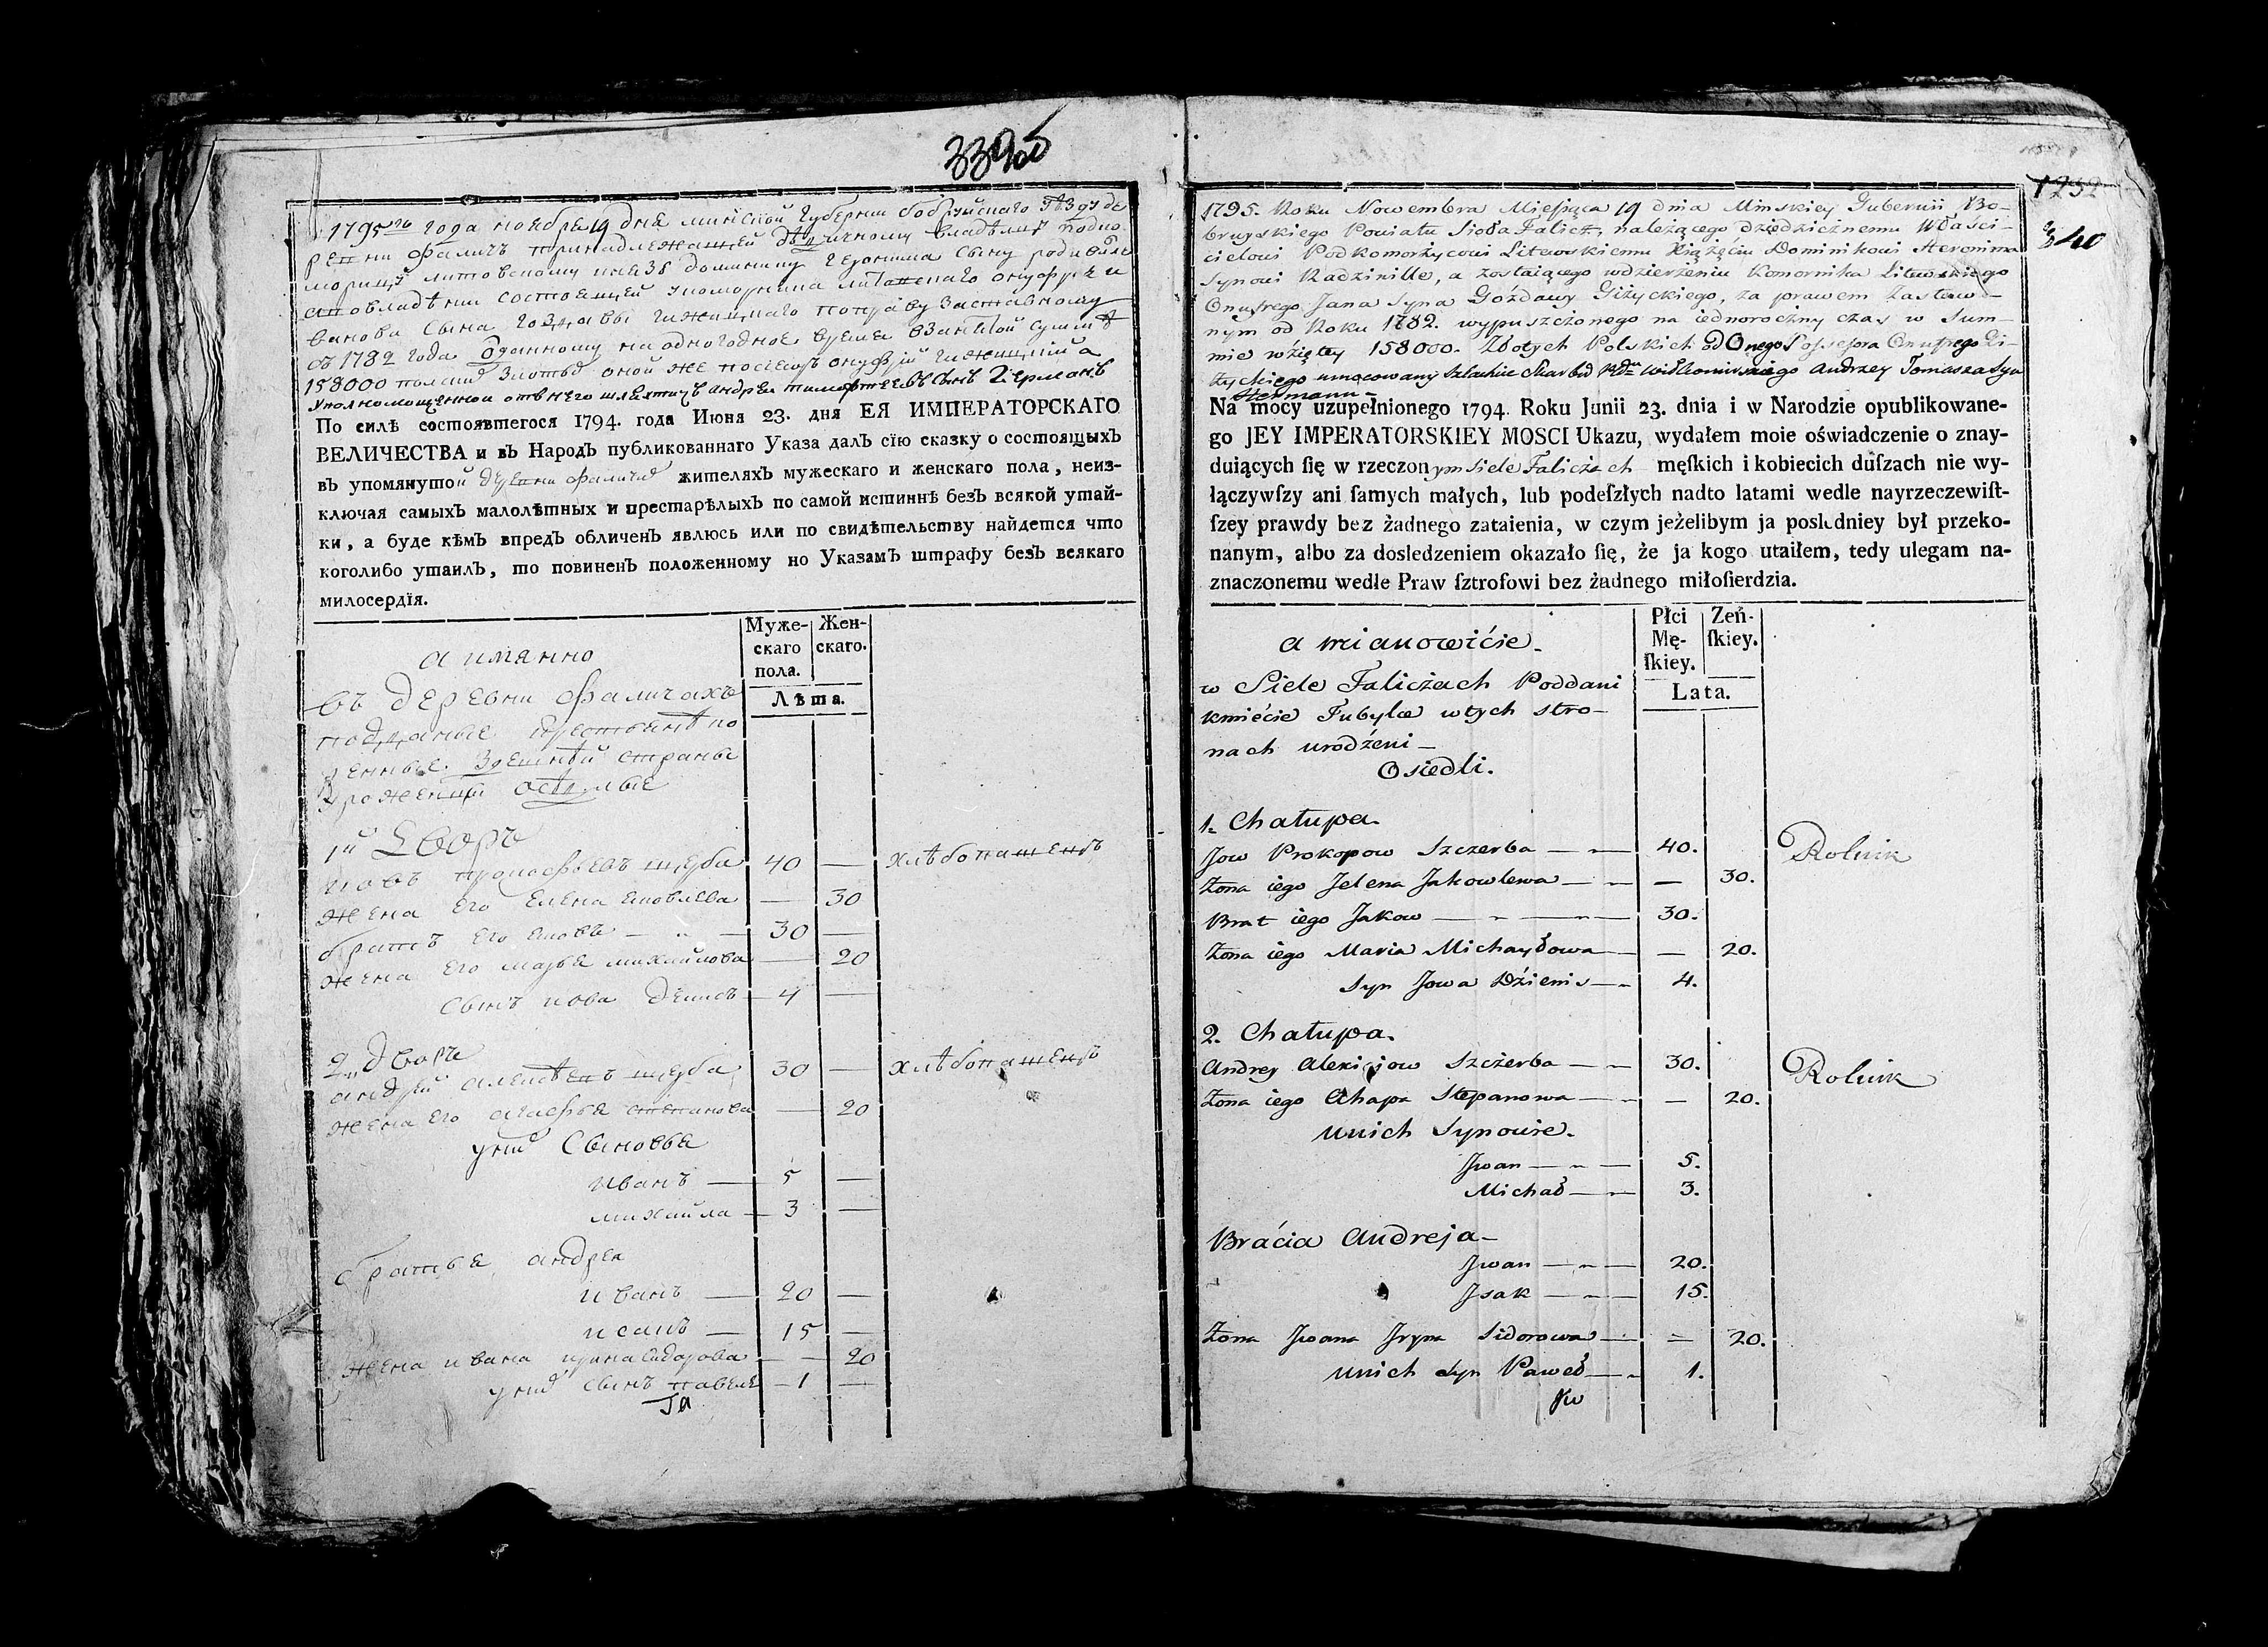 339об
1795го года ноября 19 дня минской губернии бобруйскаго уѣзду де
ревни фаличъ принадлежащей дѣдичному владѣлцу подко
морицу литовскому князю доминику геронима сыну родивилу
а во владѣнии состоящей у коморника литовскаго онуфрея и
ванова сына гоздавы гижицкаго по праву заставному
съ 1782 года зданному на одногодное время взантой суммѣ
158000 полскихъ злотыхъ оной же посесоръ онуфрий гижицкий а
уполномощенной отъ него шляхтичъ андрей тимофтеевъ сынъ германъ
По силѣ состоявшегося 1794. года Июня 23. дня ЕЯ ИМПЕРАТОРСКАГО
ВЕЛИЧЕСТВА и въ Народъ публикованнаго Указа далъ сїю сказку о состоящыхъ
въ упомянутой деревни фаличахъ жителяхъ мужескаго и женскаго пола, неиз-
ключая самыхъ малолѣтных и престарѣлыхъ по самой истиннѣ безъ всякой утай-
ки, а буде кѣмъ впредъ обличенъ явлюсь или по свидѣтельству найдется что
коголибо утаилъ, то повиненъ положенному но Указамъ штрафу безъ всякаго
милосердїя.
Муже-
скаго
пола.
Жен-
скаго.
Лѣта.
а имянно
въ деревни фаличахъ
подданые крестьянѣ по
женные здешнѣй страны
урожении осѣлые
1й Дворъ
иовъ прокофьевъ щерба 40 — хлѣбопашецъ
жена его елена яковлева — 30
братъ его яковъ — 30 —
жена его марья михайлова — 20
сынъ иова денисъ — 4 —
2й дворъ
андрей алексѣевъ щерба 30 — хлѣбопашецъ
жена его агафья степанова — 20
у нихъ сыновья
иванъ — 5 —
михайла — 3 —
братья андрея
иванъ — 20 —
исакъ — 15 —
жена ивана ирина сидорова — 20
у нихъ сынъ павелъ — 1 —
1232
340
1795. Roku Nowembra Miesiąca 19 dnia Minskiey Gubernii Bo-
bruyskiego Powiatu Sioła Falicz, należącego dziedzicznemu Właści-
cielowi Podkomorzycowi Litewskiemu Xiążęciu Dominikowi Heronima
Synowi Radziwille, a zostaiącego wdzierżeniu Komornika Litewskiego
Onufrego Jana Syna Gozdawy Giżyckiego, za prawem Zastaw-
nym od Roku 1782. wypuszczonego na iednoroczny czas w Sum-
mie wziętey 158000. Złotych Polskich od Onego Possesora Onufrego Gi-
życkiego umocowany Szlachcic Andrzey Tomasza Syn
Hermann-
Na mocy uzupełnionego 1794. Roku Junii 23. dnia i w Narodzie opublikowane-
go JEY IMPERATORSKIEY MOSCI Ukazu, wydałem moie oświadczenie o znay-
duiących ſię w rzeczonym siele Faliczach męſkich i kobiecich duſzach nie wy-
łączywſzy ani ſamych małych, lub podeſzłych nadto latami wedle nayrzeczewiſt-
ſzey prawdy bez żadnego zataienia, w czym jeżelibym ja posledniey był przeko-
nanym, albo za dosledzeniem okazało ſię, że ja kogo utaiłem, tedy ulegam na-
znaczonemu wedle Praw ſztrofowi bez żadnego miłosierdzia.
Płci
Mę-
ſkiey.
Zeń-
ſkiey.
Lata.
a mianowićie.
w Siele Faliczach Poddani
kmiécie Tubylce wtych stro-
nach urodźeni-
Osiedli.
1. Chałupa.
Jow Prokopow Szczerba — 40. Rolnik
Żona iego Jelena Jakowlewa — — 30.
Brat iego Jakow — 30.
Żona iego Maria Michayłowa — — 20.
Syn Jowa Dźienis — 4.
2. Chałupa.
Andrey Alexiejow Szczerba — 30. Rolnik
Żona iego Ahapa Stepanowa — — 20.
unich Synowie.
Jwan — 5.
Michał — 3.
Bráćia Andreja-
Jwan — 20.
Jsak — 15.
Żona Jwana Jryna Sidorowa — — 20.
unich Syn Paweł — 1.
Jw